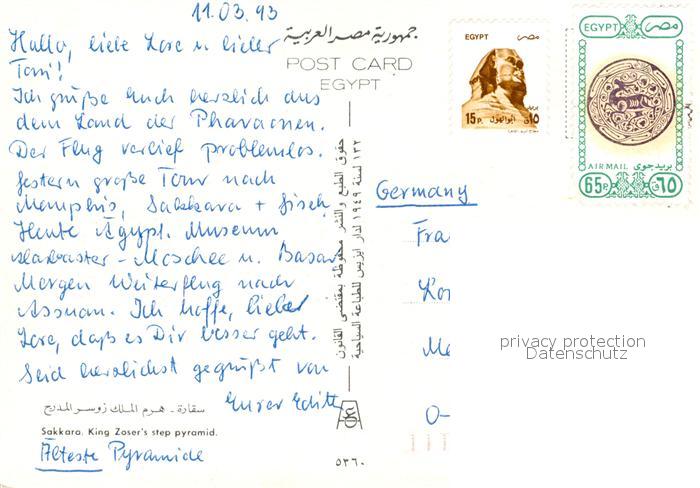 11.03.93
Hallo, liebe Lore u. lieber
Toni!
Ich grüße Euch herzlich aus
dem Land der Pharaonen.
Der Flug verlief problemlos.
Gestern große Tour nach
Memphis, Sakkara + Giseh
Heute Ägypt. Museum
Alabaster-Moschee u. Basar
Morgen Weiterflug nach
Assuan. Ich hoffe, liebe
Lore, daß es Dir besser geht.
Seid herzlichst gegrüßt von
Eurer Edith
سقارة - هرم الملك زوسر المدرج
Sakkara. King Zoser's step pyramid.
Älteste Pyramide
جمهورية مصر العربية
POST CARD
EGYPT
حقوق الطبع والنشر محفوظة بمقتضى القانون
١٣٢ لسنة ١٩٤٩ لدار ايزيس للطباعة السياحية
٥٣٦٠
EGYPT مصر
15 P. ابو الهول ١٥
EGYPT مصر
AIR MAIL بريد جوى
65 P ٦٥
Germany
Fra
Lor
O-
privacy protection
Datenschutz